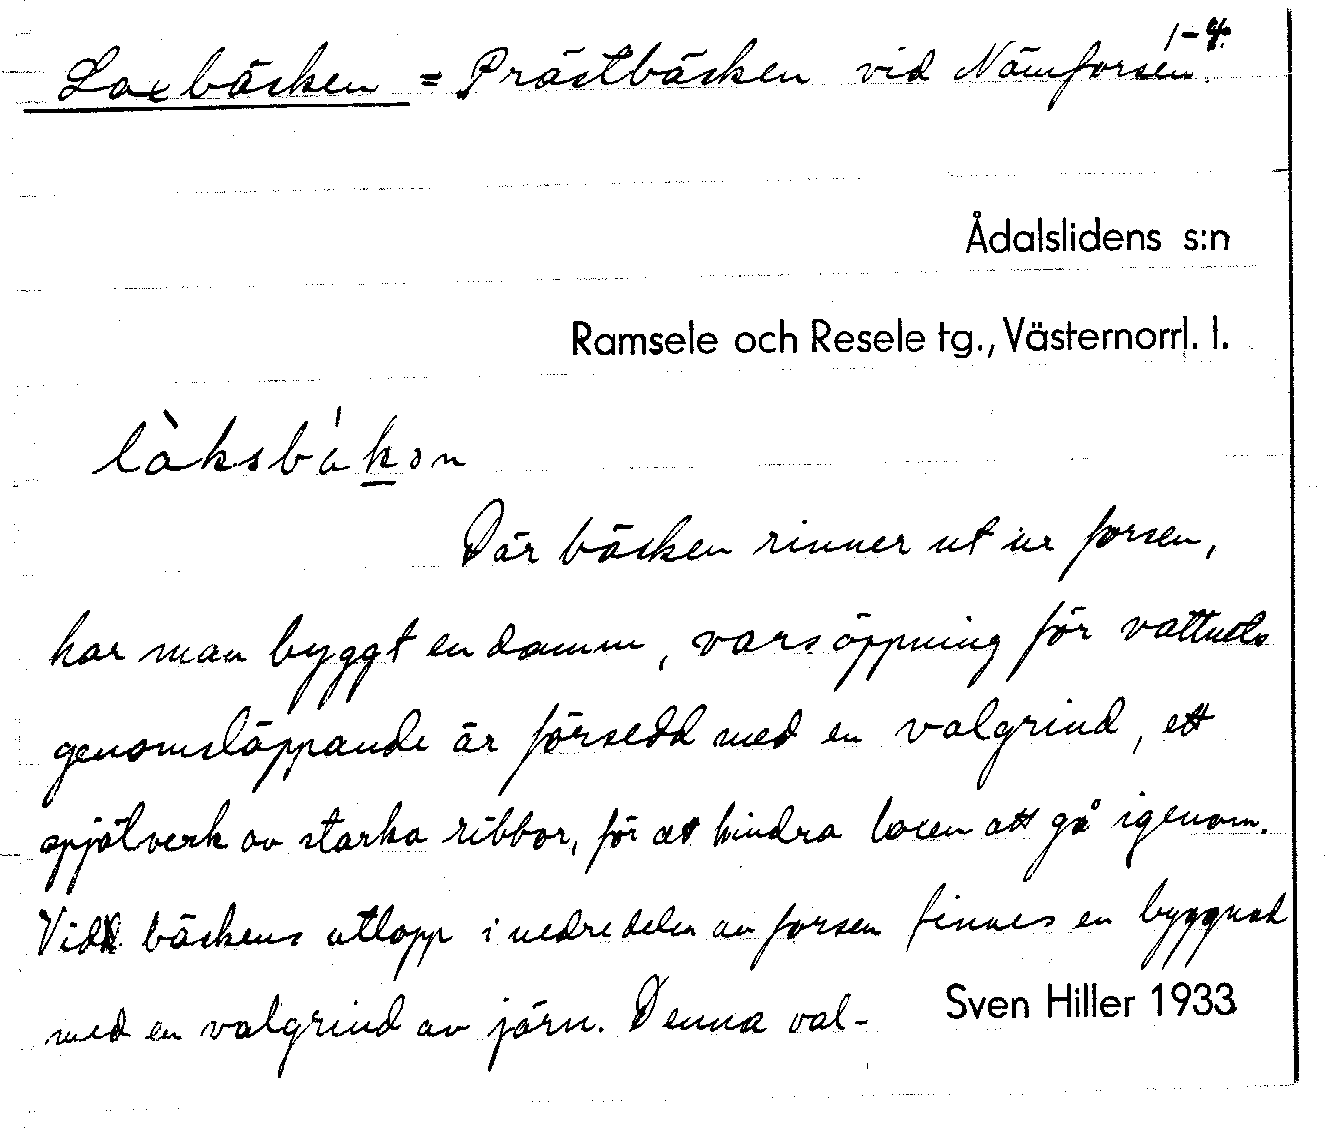 1-4.
Laxbäcken = Prästbäcken vid Nämforsen.
Ådalslidens s:n
Ramsele och Resele tg., Västernorrl. l.
làksbákən
Där bäcken rinner ut ur forsen,
har man byggt en damm, vars öppning för vattnets
genomsläppande är försedd med en valgrind, ett
spjälverk av starka ribbor, för att hindra laxen att gå igenom.
Vid bäckens utlopp i nedre delen av forsen finnes en byggnad
med en valgrind av järn. Denna val-
Sven Hiller 1933